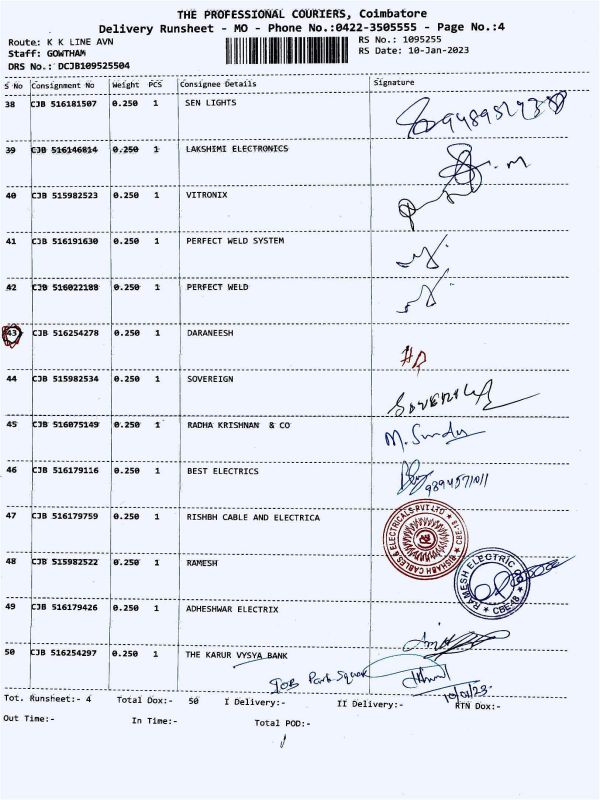 THE PROFESSIONAL COURIERS, Coimbatore
Delivery Runsheet - MO - Phone No.:0422-3505555 - Page No.:4
Route: K K LINE AVN RS No.: 1095255
Staff: GOWTHAM RS Date: 10-Jan-2023
DRS No.: DCJB109525504
S No Consignment No Weight PCS Consignee Details Signature
38 CJB 516181507 0.250 1 SEN LIGHTS
39 CJB 516146814 0.250 1 LAKSHIMI ELECTRONICS
40 CJB 515982523 0.250 1 VITRONIX
41 CJB 516191630 0.250 1 PERFECT WELD SYSTEM
42 CJB 516022188 0.250 1 PERFECT WELD
43 CJB 516254278 0.250 1 DARANEESH
44 CJB 515982534 0.250 1 SOVEREIGN
45 CJB 516075149 0.250 1 RADHA KRISHNAN & CO M. Sundu
46 CJB 516179116 0.250 1 BEST ELECTRICS 9894571011
47 CJB 516179759 0.250 1 RISHBH CABLE AND ELECTRICA
RISHABH CABLES & ELECTRICALS PVT LTD CBE-18
48 CJB 515982522 0.250 1 RAMESH
RAMESH ELECTRIC CBE-18
49 CJB 516179426 0.250 1 ADHESHWAR ELECTRIX
50 CJB 516254297 0.250 1 THE KARUR VYSYA BANK
Park Square
10/01/23
Tot. Runsheet:- 4 Total Dox:- 50 I Delivery:- II Delivery:- RTN Dox:-
Out Time:- In Time:- Total POD:-